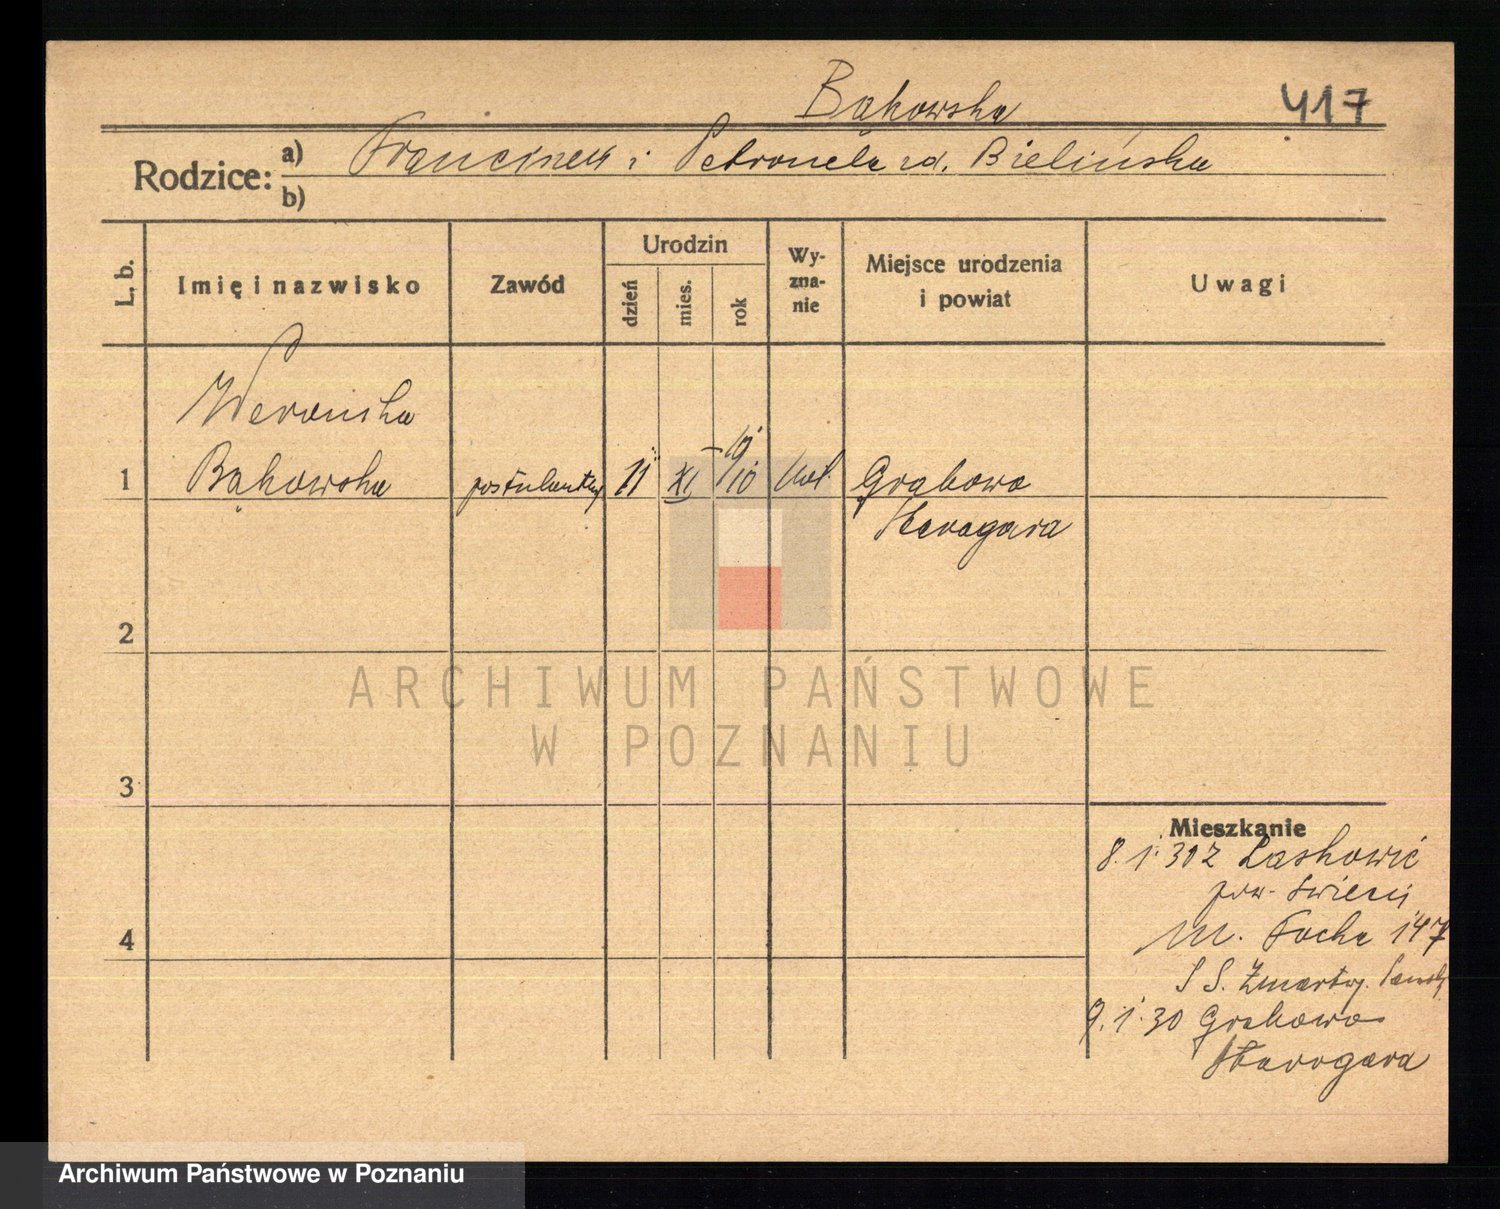 Bąkowska 417
Rodzice: a) Franciszek i Petronela zd. Bielińska
b)
L. b.
Imię i nazwisko
Zawód
Urodzin
dzień
mies.
rok
Wy-
zna-
nie
Miejsce urodzenia
i powiat
Uwagi
Weronika
1 Bąkowska postulantka 11 XI 1910 kat. Grabowo
Starogard
2
ARCHIWUM PAŃSTWOWE
W POZNANIU
3
Mieszkanie
8.1.30 z Laskowic
pow. Świecie
4
M. Focha 147
S S. Zmartw. Pańsk.
9.1.30 Grabowo
Starogard
Archiwum Państwowe w Poznaniu